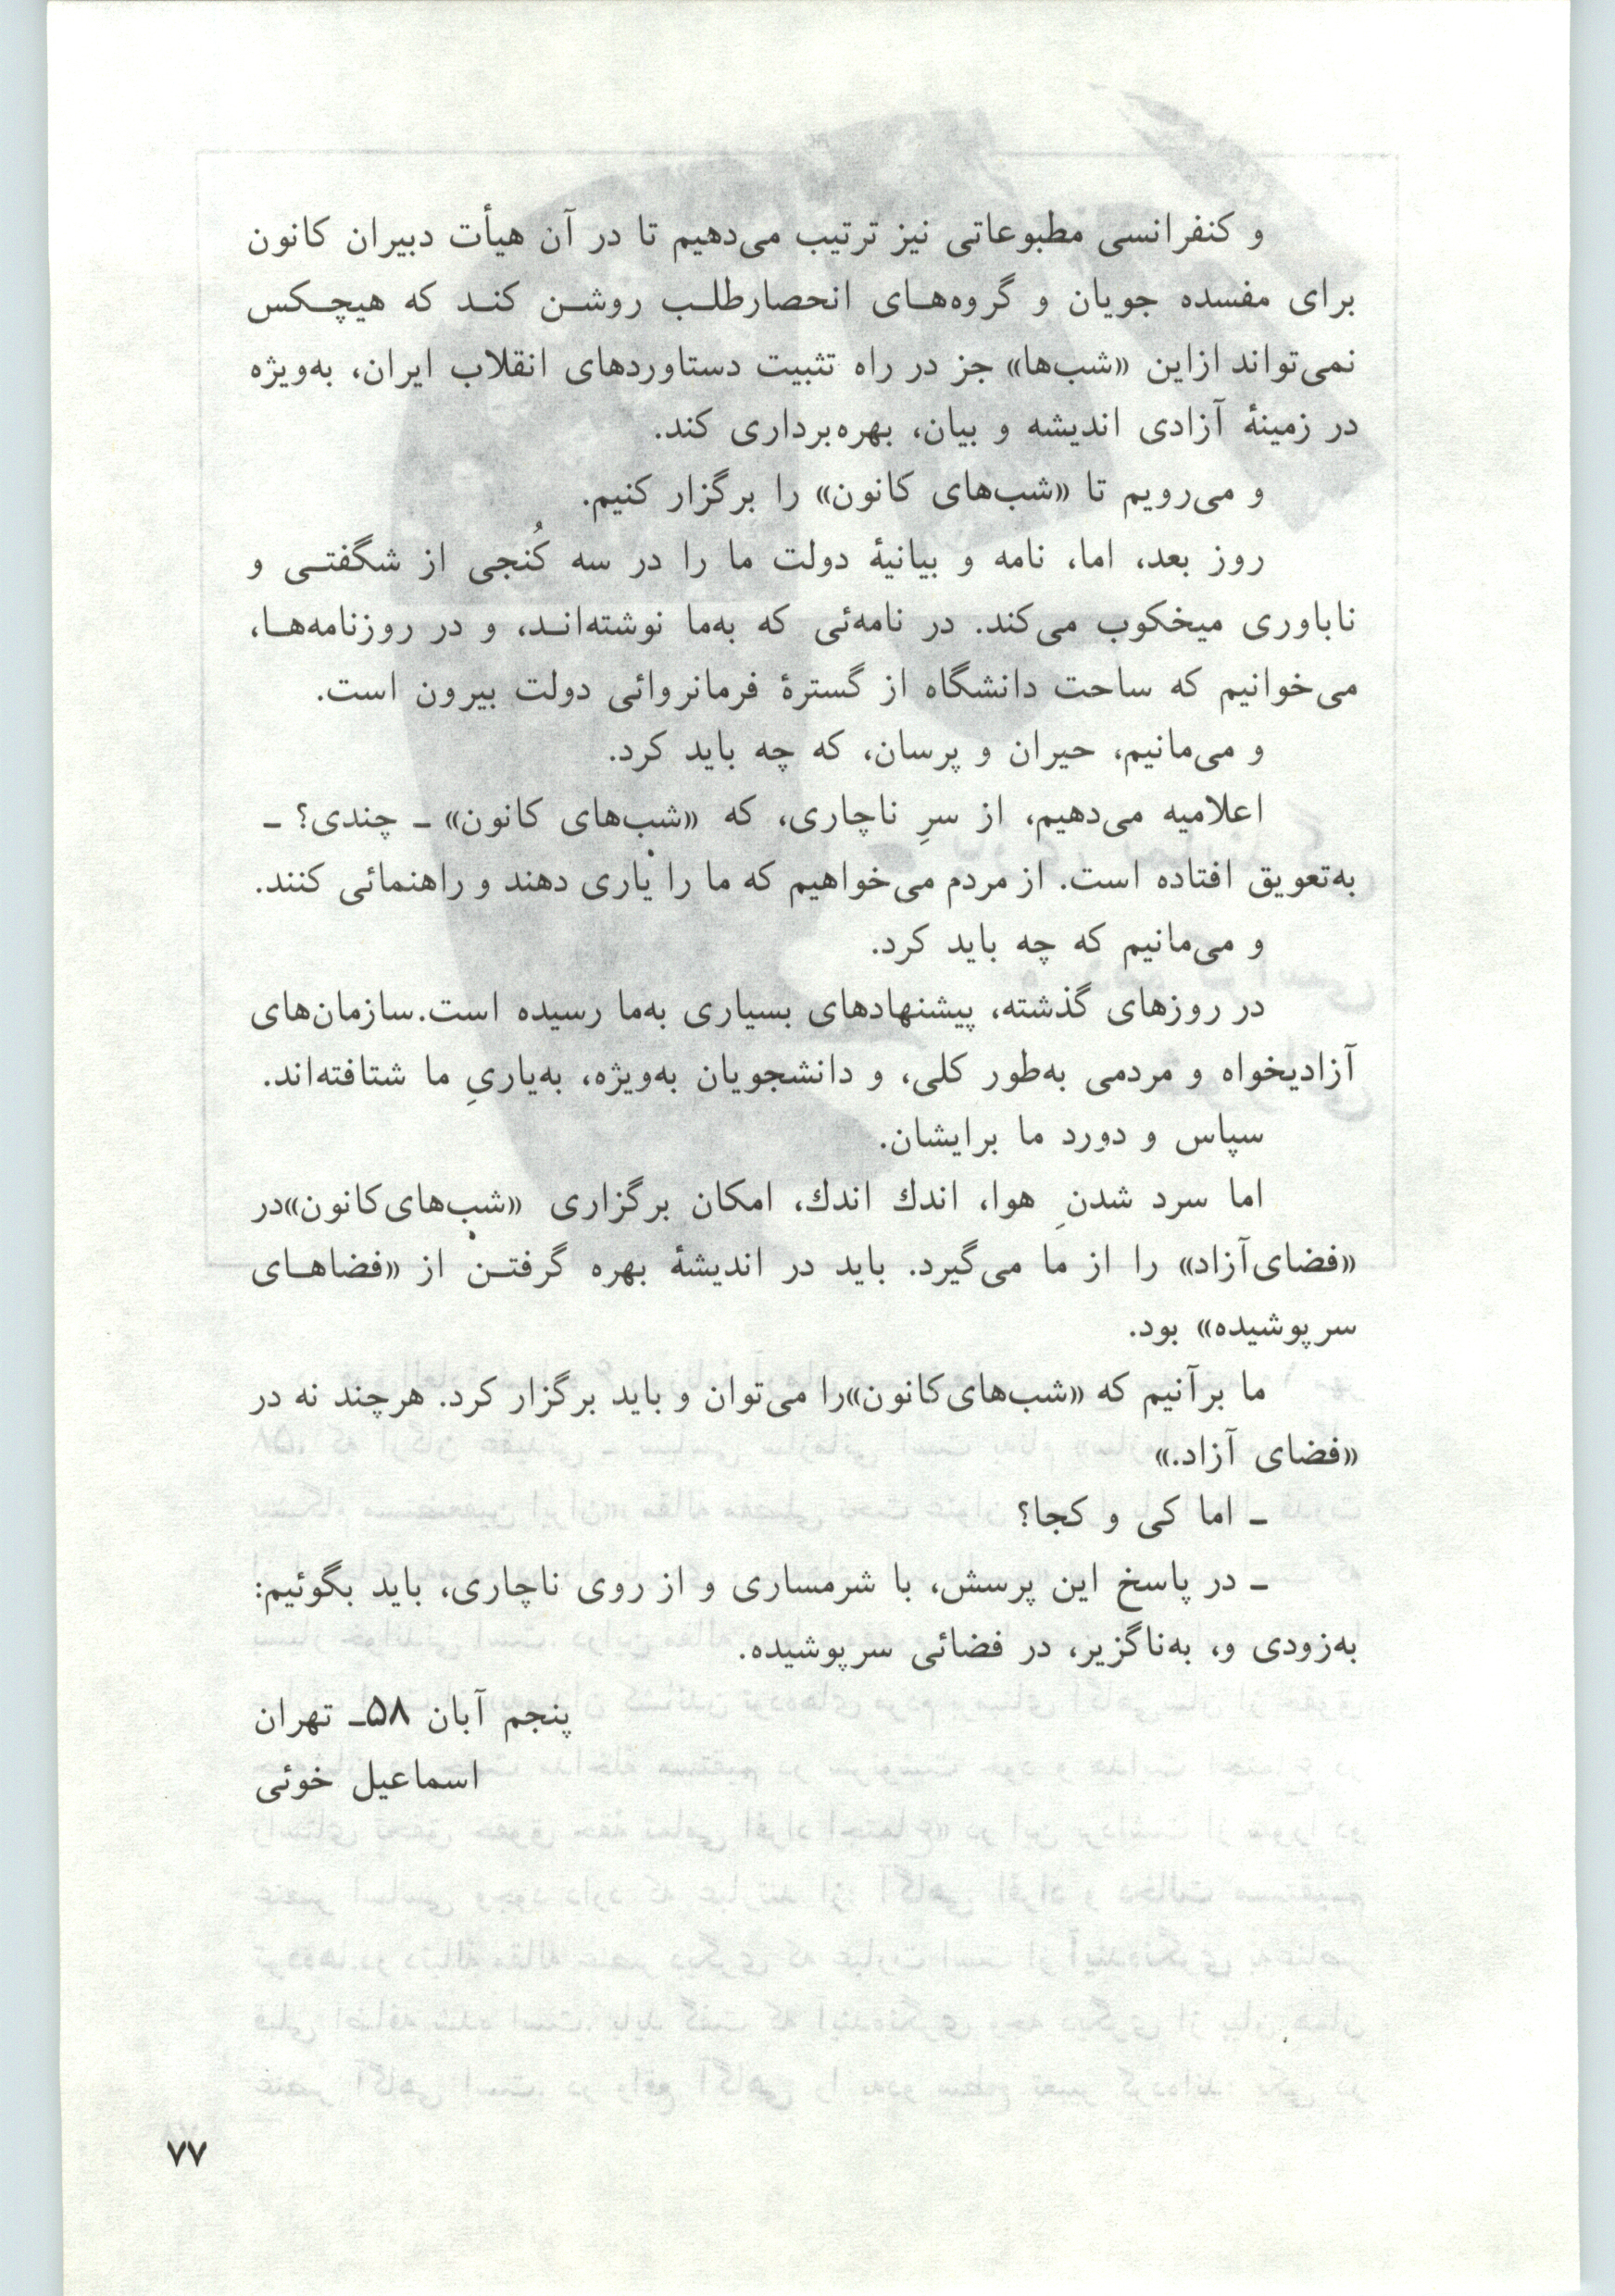 و کنفرانسی مطبوعاتی نیز ترتیب می‌دهیم تا در آن هیأت دبیران کانون
برای مفسده جویان و گروه‌های انحصارطلب روشن کند که هیچکس
نمی‌تواند ازاین «شب‌ها» جز در راه تثبیت دستاوردهای انقلاب ایران، به‌ویژه
در زمینهٔ آزادی اندیشه و بیان، بهره‌برداری کند.
و می‌رویم تا «شب‌های کانون» را برگزار کنیم.
روز بعد، اما، نامه و بیانیهٔ دولت ما را در سه کُنجی از شگفتی و
ناباوری میخکوب می‌کند. در نامه‌ئی که به‌ما نوشته‌اند، و در روزنامه‌ها،
می‌خوانیم که ساحت دانشگاه از گسترهٔ فرمانروائی دولت بیرون است.
و می‌مانیم، حیران و پرسان، که چه باید کرد.
اعلامیه می‌دهیم، از سرِ ناچاری، که «شب‌های کانون» ـ چندی؟ ـ
به‌تعویق افتاده است. از مردم می‌خواهیم که ما را یاری دهند و راهنمائی کنند.
و می‌مانیم که چه باید کرد.
در روزهای گذشته، پیشنهادهای بسیاری به‌ما رسیده است.سازمان‌های
آزادیخواه و مردمی به‌طور کلی، و دانشجویان به‌ویژه، به‌یاریِ ما شتافته‌اند.
سپاس و دورد ما برایشان.
اما سرد شدنِ هوا، اندك اندك، امکان برگزاری «شب‌های‌کانون»در
«فضای‌آزاد» را از ما می‌گیرد. باید در اندیشهٔ بهره گرفتن از «فضاهای
سرپوشیده» بود.
ما برآنیم که «شب‌های‌کانون»را می‌توان و باید برگزار کرد. هرچند نه در
«فضای آزاد.»
ـ اما کی و کجا؟
ـ در پاسخ این پرسش، با شرمساری و از روی ناچاری، باید بگوئیم:
به‌زودی و، به‌ناگزیر، در فضائی سرپوشیده.
پنجم آبان ۵۸ـ تهران
اسماعیل خوئی
۷۷